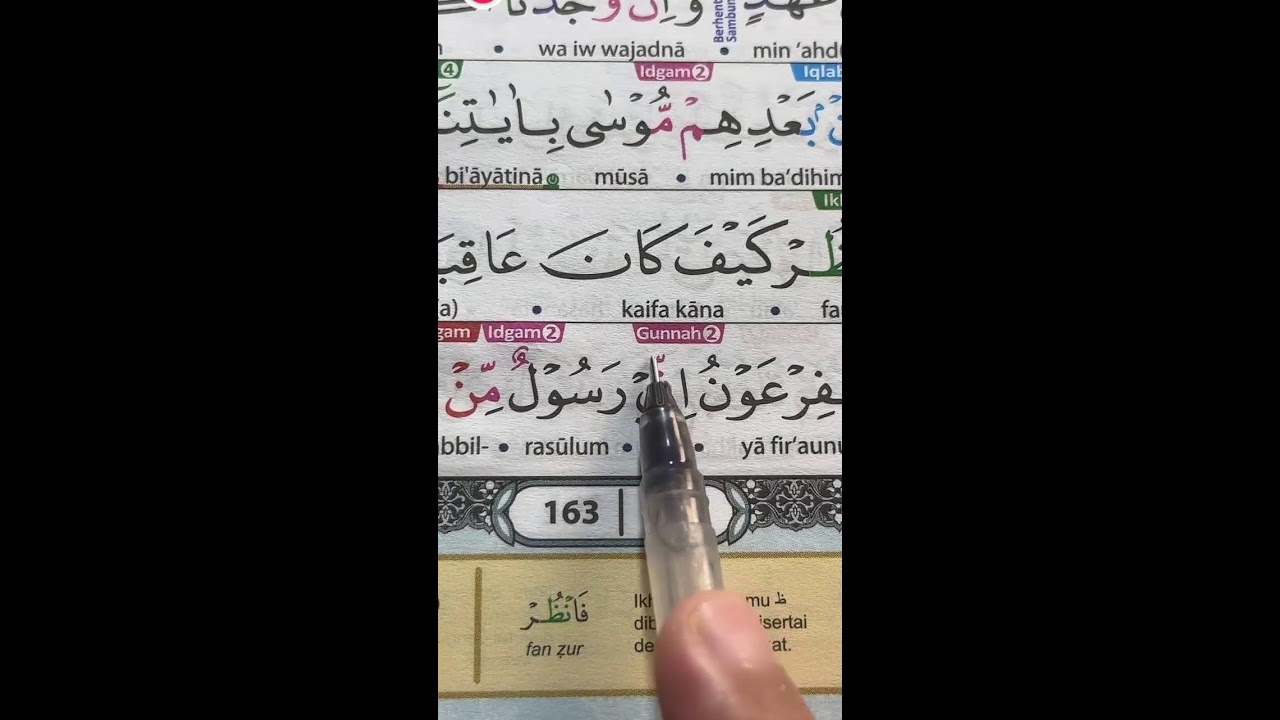 عَهْدٍ وَاِنْ وَّجَدْنَآ
Berhent
Sambun
wa iw wajadnā • min ‘ahd
4 Idgam 2 Iqlab
بَعْدِهِمْ مُّوْسٰى بِاٰيٰتِنَآ
bi'āyātinā mūsā • mim ba‘dihim
Ikh
ظُرْ كَيْفَ كَانَ عَاقِبَ
a) • kaifa kāna • fa
gam Idgam 2 Gunnah 2
فِرْعَوْنُ اِنِّيْ رَسُوْلٌ مِّنْ
bbil- • rasūlum • • yā fir‘aunu
163
فَانْظُرْ
fan ẓur
Ikh mu ظ
dib isertai
de at.